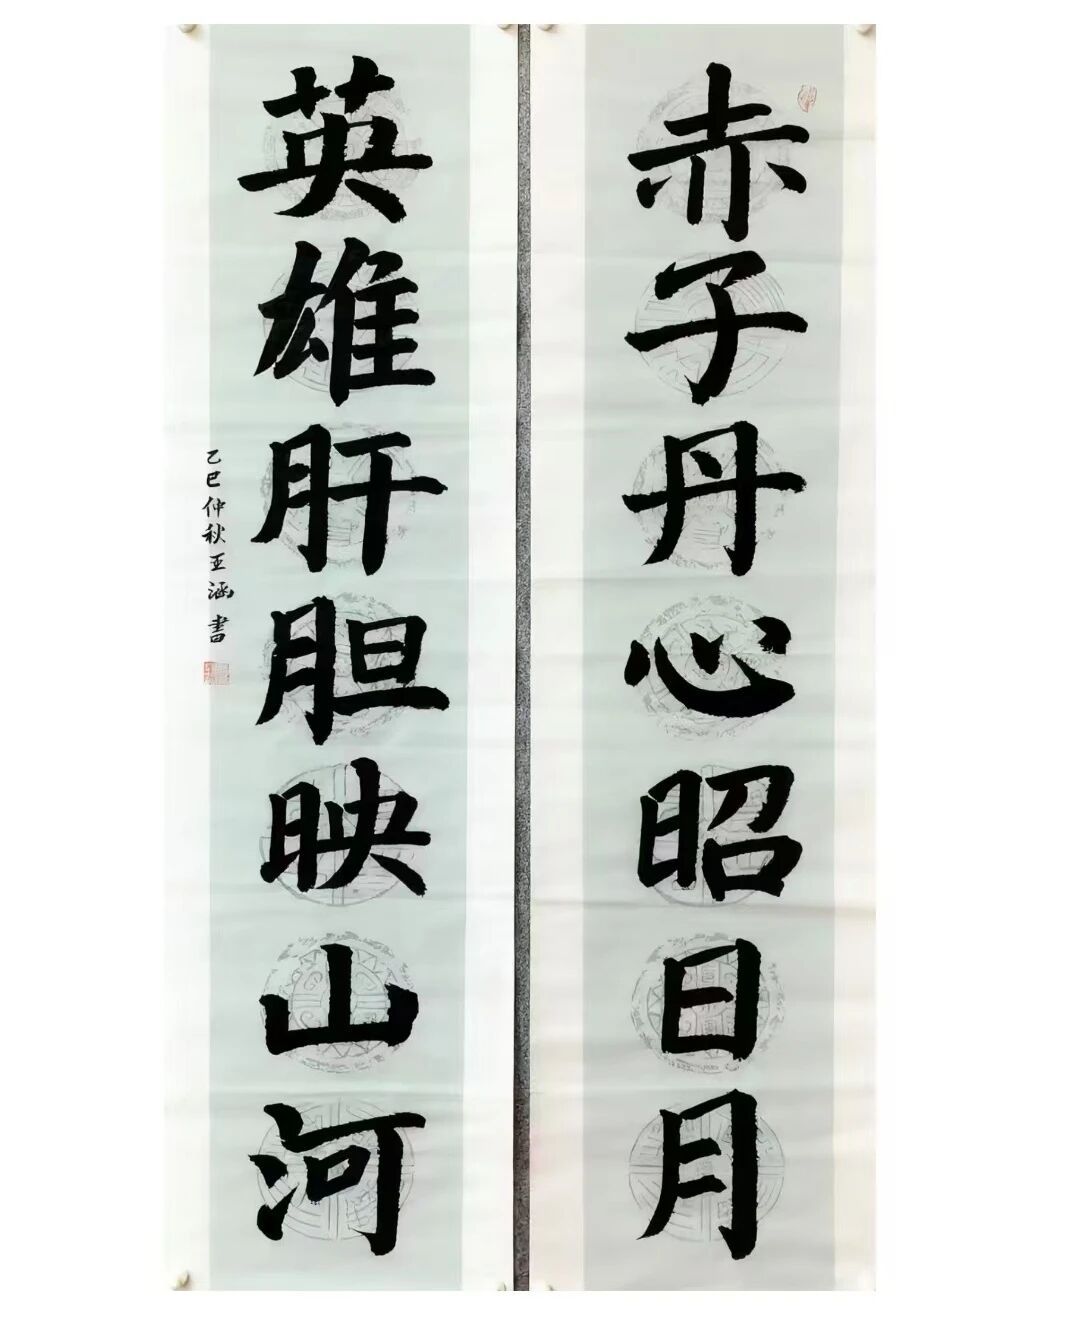 赤子丹心昭日月
英雄肝胆映山河
乙巳仲秋亚涵書